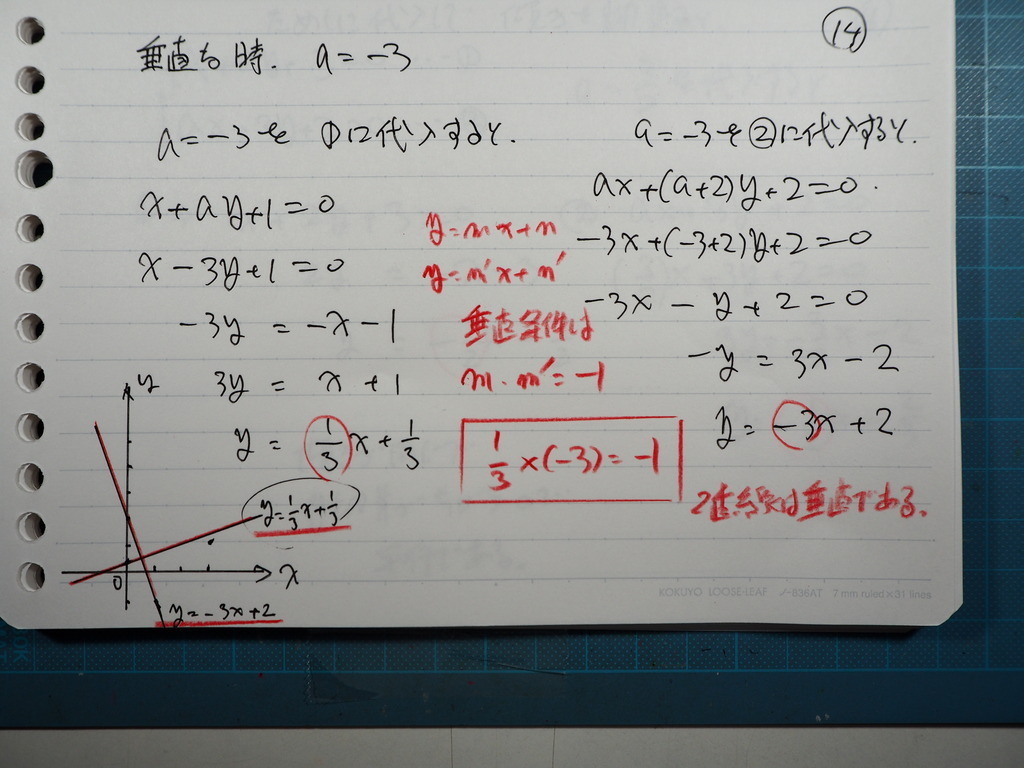 ⑭
垂直な時. a = -3
a = -3を ①に代入すると.
x + ay + 1 = 0
x - 3y + 1 = 0
-3y = -x - 1
3y = x + 1
y = 1/3 x + 1/3
y = mx + n
y = m'x + n'
垂直条件は
m・m' = -1
1/3 × (-3) = -1
a = -3を②に代入すると.
ax + (a+2)y + 2 = 0.
-3x + (-3+2)y + 2 = 0
-3x - y + 2 = 0
-y = 3x - 2
y = -3x + 2
2直線は垂直である.
y
y = 1/3 x + 1/3
0
x
y = -3x + 2
KOKUYO LOOSE-LEAF ノ-836AT 7 mm ruled×31 lines